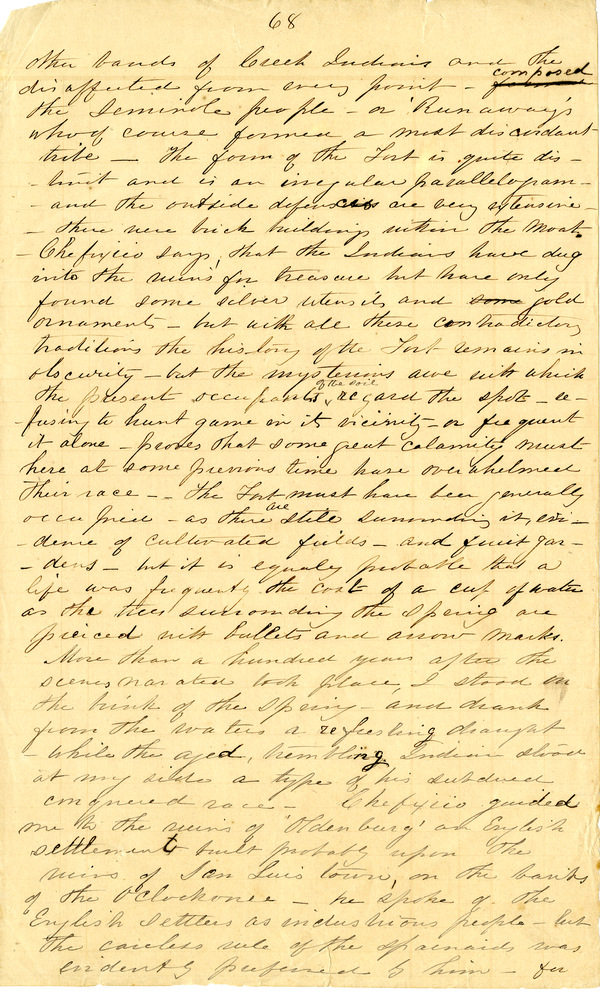 68
other bands of Creek Indians and the
disaffected from every point - composed
the Seminole people - or 'Runaways'
who of course formed a most discordant
tribe — The form of the Fort is quite dis-
-tinct and is an irregular parallelogram -
- and the outside defences are very extensive -
- there were brick buildings within the Moat.
- Chefixico says, that the Indians have dug
into the ruins for treasure but have only
found some silver utensils and some gold
ornaments - but with all these contradictory
traditions the history of the Fort remains in
obscurity - but the mysterious awe with which
of the soil
the present occupants regard the spot - re-
-fusing to hunt game in its vicinity - or frequent
it alone - proves that some great calamity must
here at some previous time have overwhelmed
their race - - The Fort must have been generally
are
occupied - as there still surrounding it, evi-
-dence of cultivated fields - and fruit gar-
-dens - but it is equaly probable that a
life was frequently the cost of a cup of water
as the trees surrounding the spring are
pierced with bullets and arrow marks.
More than a hundred years after the
scenes narated took place, I stood on
the brink of the spring - and drank
from the waters a refreshing draught
while the aged, trembling Indian stood
at my side a type of his subdued
conquered race - Chefixico guided
me to the ruins of 'Oldenburg' an English
settlement built probably upon the
ruins of San Luis town, on the banks
of the Oclockonee - he spoke of the
English Settlers as industrious people - but
the careless rule of the Spaniards was
evidently preferred by him - for